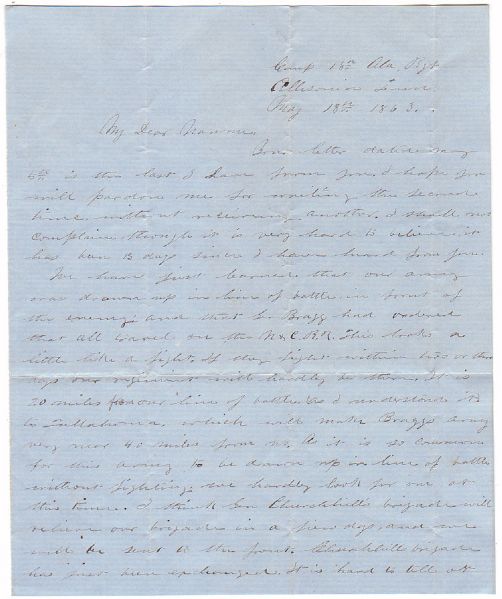 Camp 18th Ala Regt
Allisonia Tenn
May 18th 1863.
My Dear
Your letter dated May
5th is the last I have from you. I hope you
will pardon me for writing the second
time without receiving another. I shall not
complain though it is very hard to believe it
has been 13 days since I have heard from you.
We have just learned that our army
was drawn up in line of battle in front of
the enemy and that G. Bragg had ordered
that all travel on the N & C. R.R. This looks a
little like a fight. If they fight within two or three
days our regiment will hardly be there. It is
20 miles from our line of battle as I understand it
to Tullahoma, which will make Braggs army
very near 40 miles from us. As it is so common
for this army to be drawn up in line of battle
without fighting we hardly look for one at
this time. I think Gen Churchill's brigade will
relieve our brigade in a few days and we
will be sent to the front. Churchill brigade
has just been exchanged. It is hard to tell at